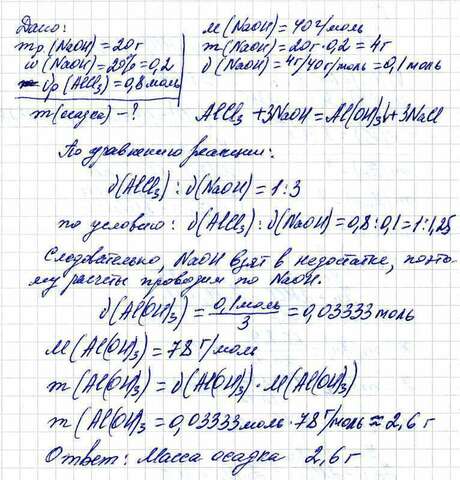 Дано:
mр (NaOH) = 20 г
ω (NaOH) = 20% = 0,2
νр (AlCl3) = 0,8 моль
m (осадка) - ?
M (NaOH) = 40 г/моль
m (NaOH) = 20г · 0,2 = 4г
ν (NaOH) = 4г/40 г/моль = 0,1 моль
AlCl3 + 3NaOH = Al(OH)3↓ + 3NaCl
По уравнению реакции:
ν(AlCl3) : ν(NaOH) = 1:3
по условию: ν(AlCl3) : ν(NaOH) = 0,8 : 0,1 = 1:1,25
Следовательно, NaOH взят в недостатке, поэто-
му расчеты проводим по NaOH.
ν(Al(OH)3) = 0,1 моль / 3 = 0,03333 моль
M (Al(OH)3) = 78 г/моль
m (Al(OH)3) = ν(Al(OH)3) · M(Al(OH)3)
m (Al(OH)3 = 0,03333 моль · 78 г/моль ≈ 2,6 г
Ответ: Масса осадка 2,6 г